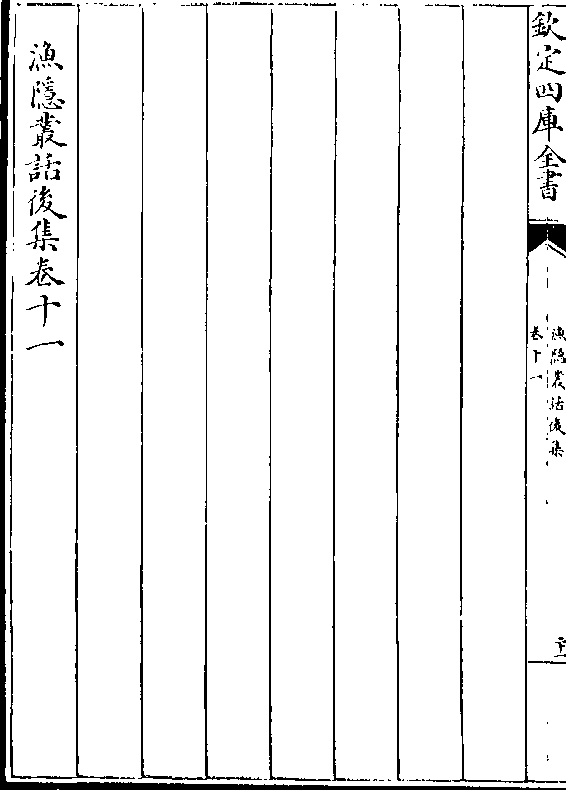 欽定四庫全書
漁隱叢話後集
卷十一
漁隱叢話後集卷十一